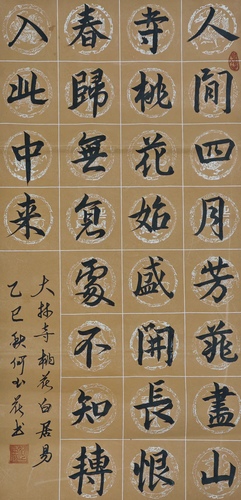 人間四月芳菲盡山
寺桃花始盛開長恨
春歸無覓處不知轉
入此中来
大林寺桃花白居易
乙巳秋何花书